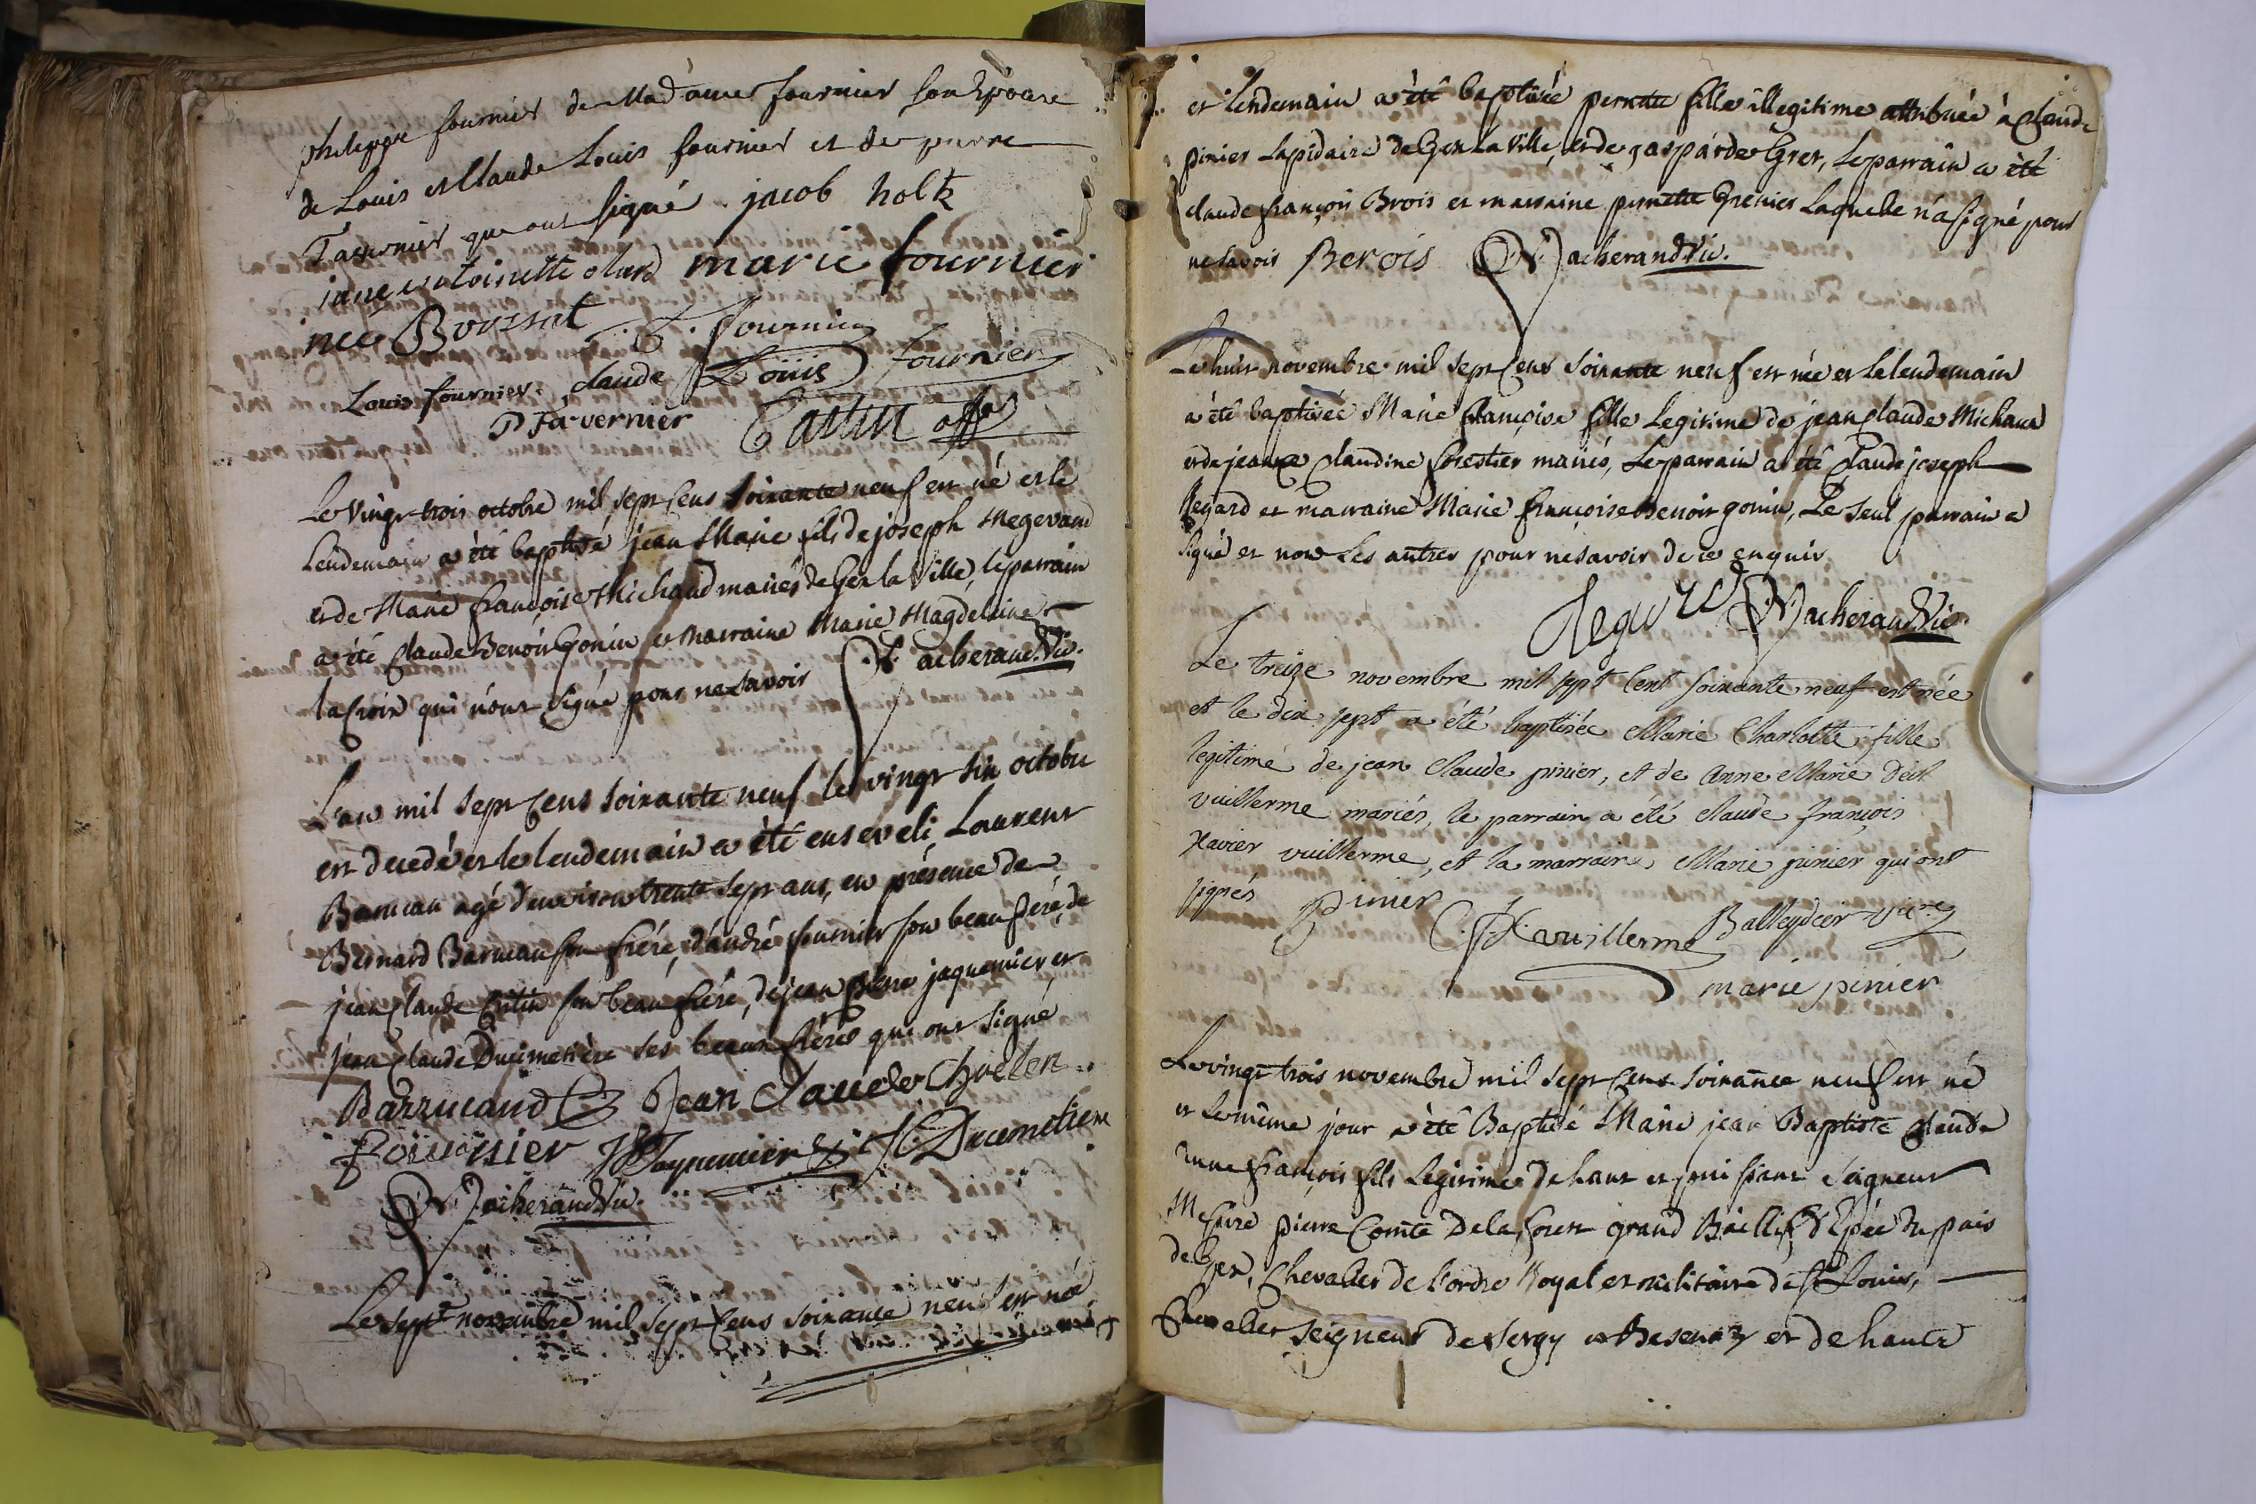 philippe fournier de Madame fournier son Epouse
de Louis et Claude Louis fournier et de pierre
Tavernier qui ont signé jacob holtz
jane entoinette marie fournier
née Bvssat fournier
Louis fournier claude Loüis fournier
P Tavernier Castin offer
Le vingt trois octobre mil sept cens soixante neuf est né et le
Lendemain a été baptisé jean Marie fils de joseph Megevand
et de Marie françoise Michaud mariés de Gex la ville, le parrain
a été Claude Benoit Gonin et marraine Marie Magdelaine
lacroix qui n'ont signé pour ne savoir Vacherand Vic.
L'an mil sept cens soixante neuf le vingt six octobre
est decedé et le lendemain a été enseveli Laurent
Barucau agé d'environ trente sept ans, en présence de
Bernard Barucau son frére, d'andré fournier son beau frére, de
jean claude son beau frére, de jean pierre jaquemier et
jean claude Ducimetière ses beaux fréres qui ont signé
Barrucand Jean Claude
fournier Jaquemier Ducemetiere
Vacherand Vic.
Le sept novembre mil sept cens soixante neuf est née
et lendemain a été baptisée pernette fille illegitime attribuée à Claude
pinier Lapidaire de Gex La ville, et de gasparde Gret, Le parrain a été
claude françois Brois et marraine pernette Grenier Laquelle n'a signé pour
ne savoir Berois Vacherand Vic.
Le huit novembre mil sept cens soixante neuf est née et le lendemain
a été baptisée Marie françoise fille Legitime de jean Claude Michaud
et de jeanne Claudine forestier mariés, Le parrain a été Claude joseph
Regard et marraine Marie françoise Benoit gonin, Le seul parrain a
signé et non Les autres pour ne savoir de ce enquis
Regard Vacherand Vic.
Le treize novembre mil sept cent soixante neuf est née
et le dix sept a été baptisée Marie Charlotte fille
legitime de jean Claude pinier, et de Anne Marie
vuillerme mariés, le parrain a été claude françois
Xavier vuillerme, et la marraine Marie pinier qui ont
signés Pinier vuillerme Balleydier vicre
marie pinier
Le vingt trois novembre mil sept cens soixante neuf est né
et le même jour a été Baptisé Marie jean Baptiste claude
anne françois fils Legitime de haut et puissant seigneur
Messire pierre Comte De la forest grand Baillif d'Epée Du païs
de Gex, Chevalier de l'ordre Royal et militaire de St Louis,
Chevalier seigneur de Sergy et de haute